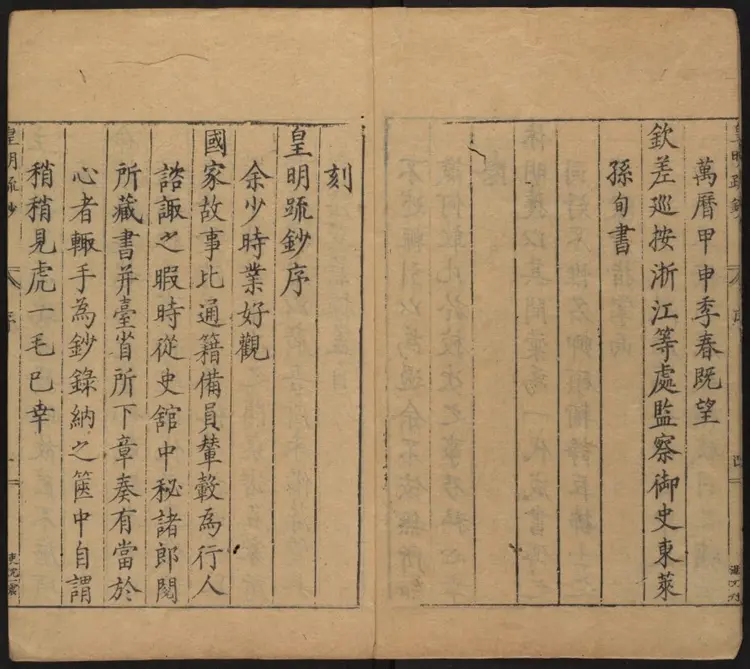 萬曆甲申季春既望
欽差巡按浙江等處監察御史東萊
孫旬書
刻
皇明䟽鈔序
余少時業好觀
國家故事比通籍備員輦轂為行人
諮諏之暇時從史舘中秘諸郎閱
所藏書并臺省所下章奏有當於
心者輙手為鈔錄納之篋中自謂
稍稍見虎一毛已幸
皇明疏鈔